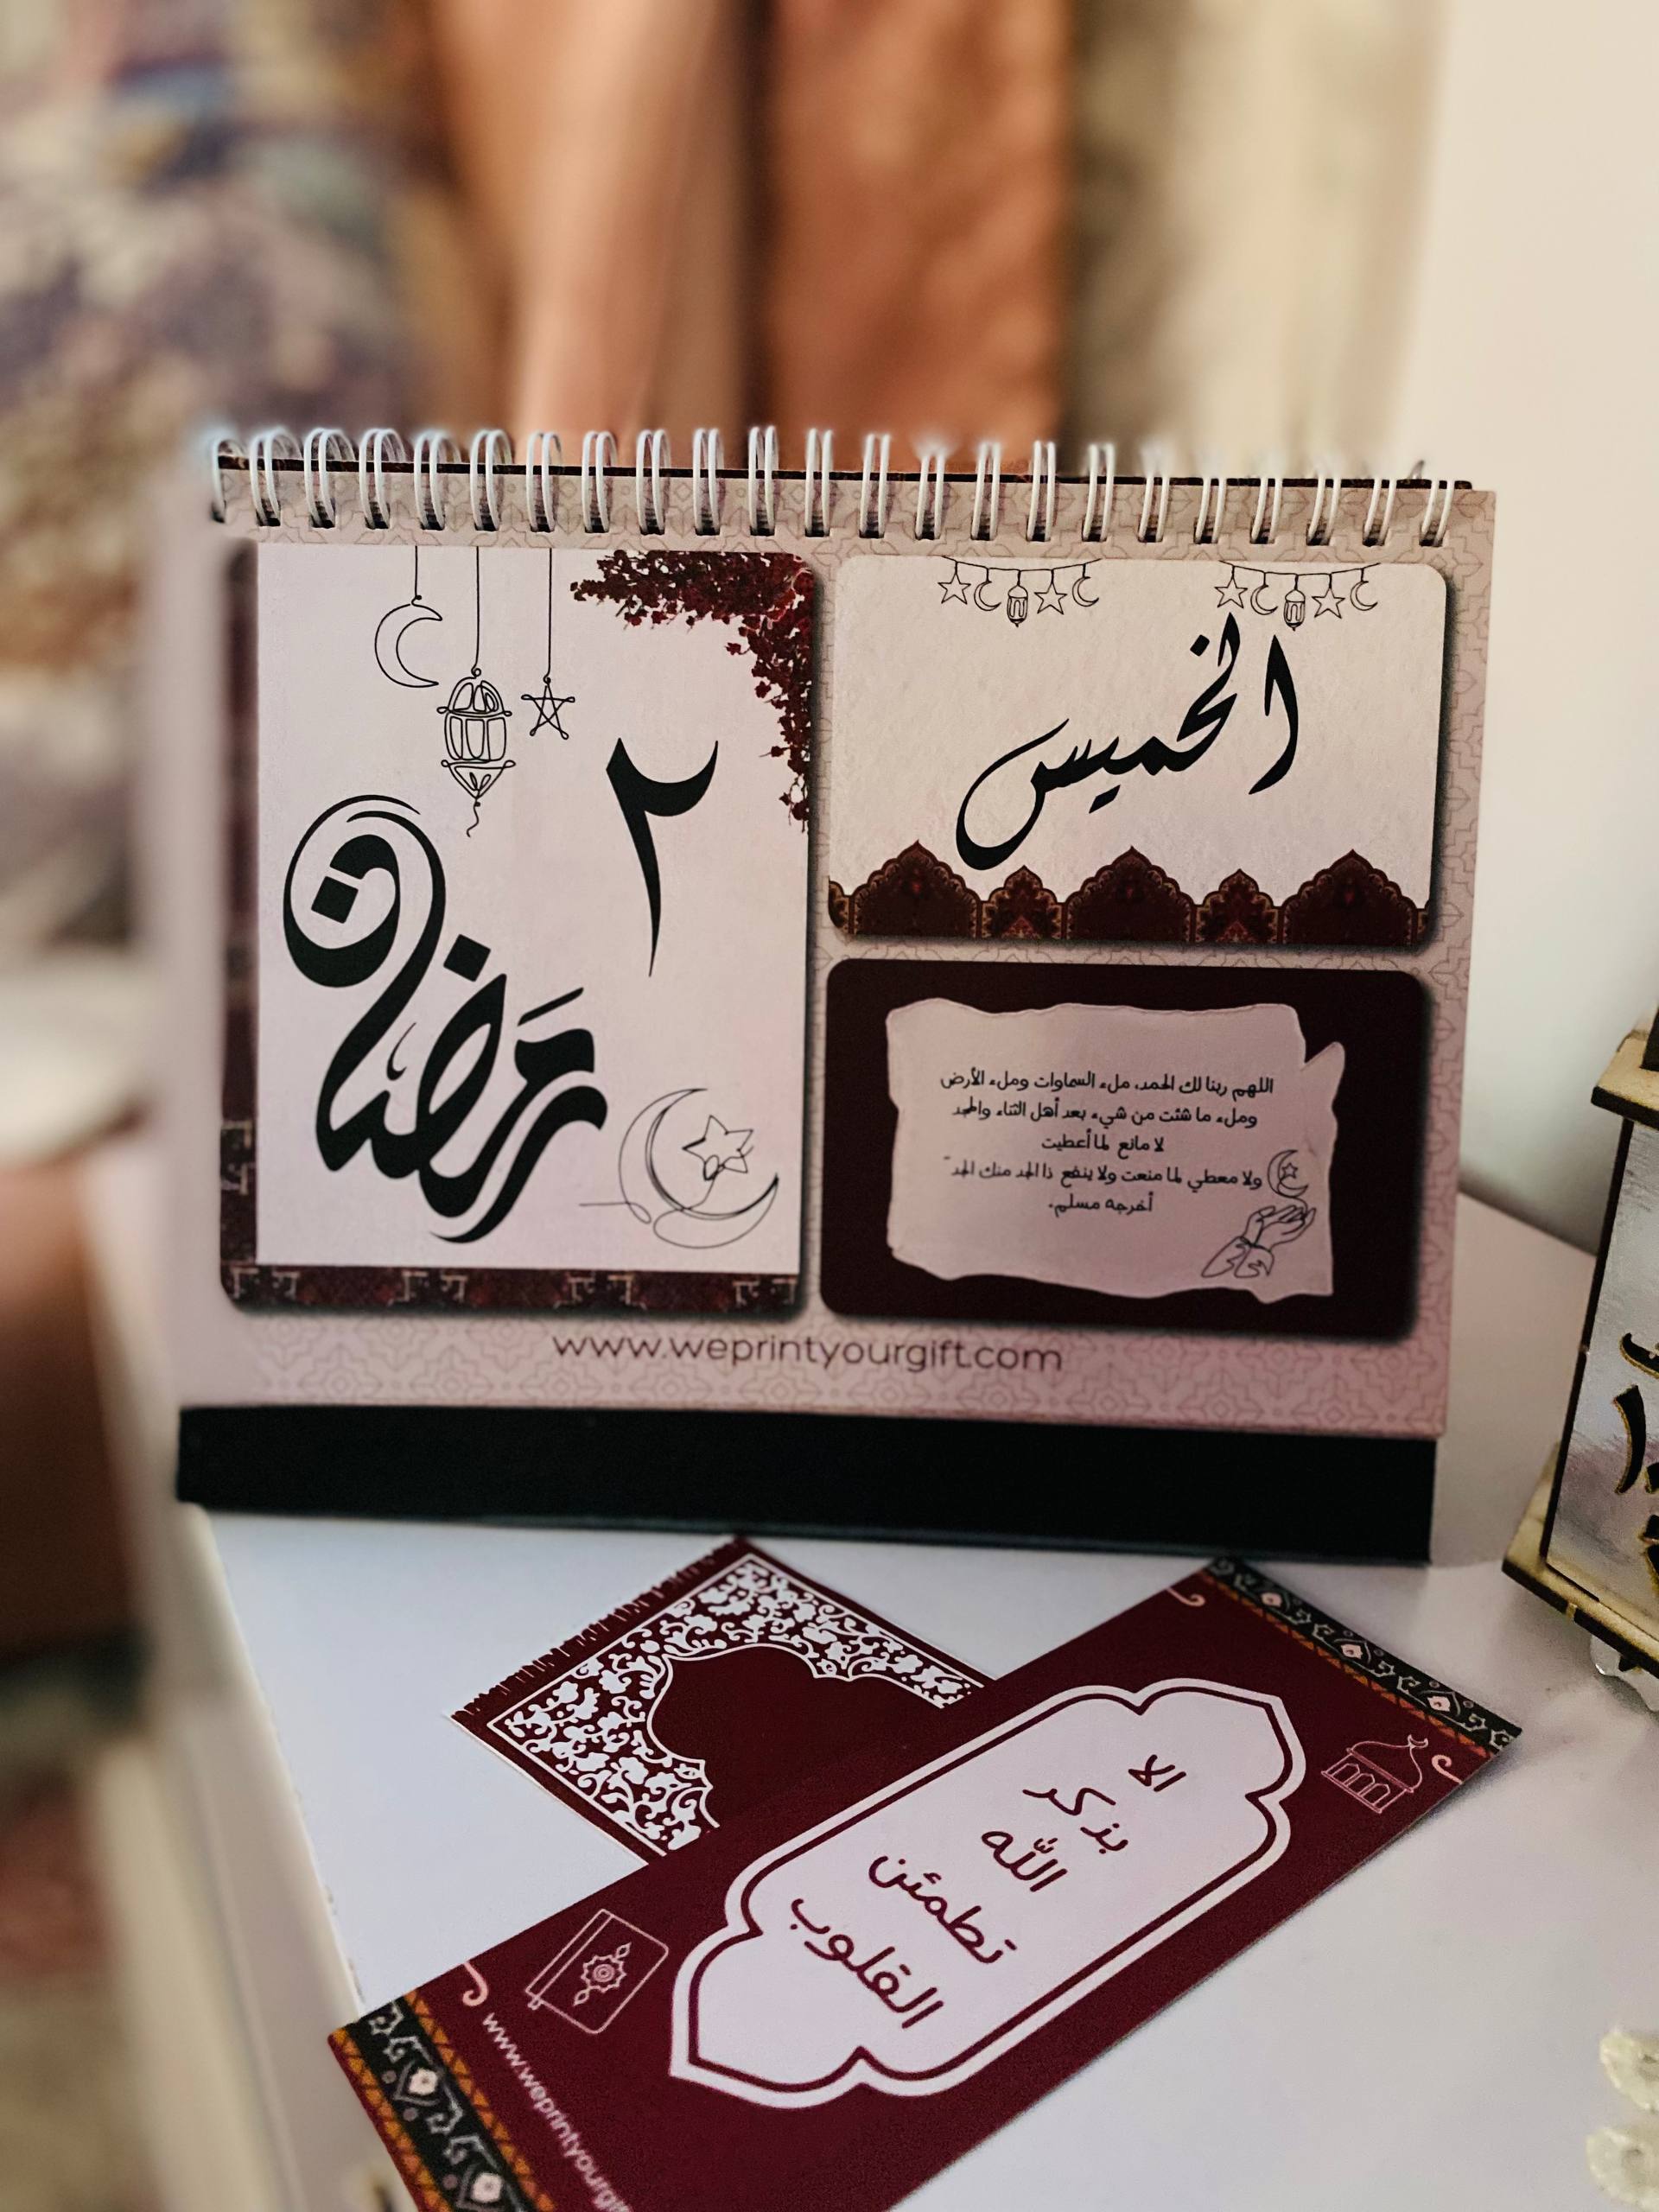 ٢
رمضان
الخميس
اللهم ربنا لك الحمد، ملء السماوات وملء الأرض
وملء ما شئت من شيء بعد أهل الثناء والمجد
لا مانع لما أعطيت
ولا معطي لما منعت ولا ينفع ذا الجد منك الجد
أخرجه مسلم.
www.weprintyourgift.com
الا
بذكر
الله
تطمئن
القلوب
www.weprintyourgif